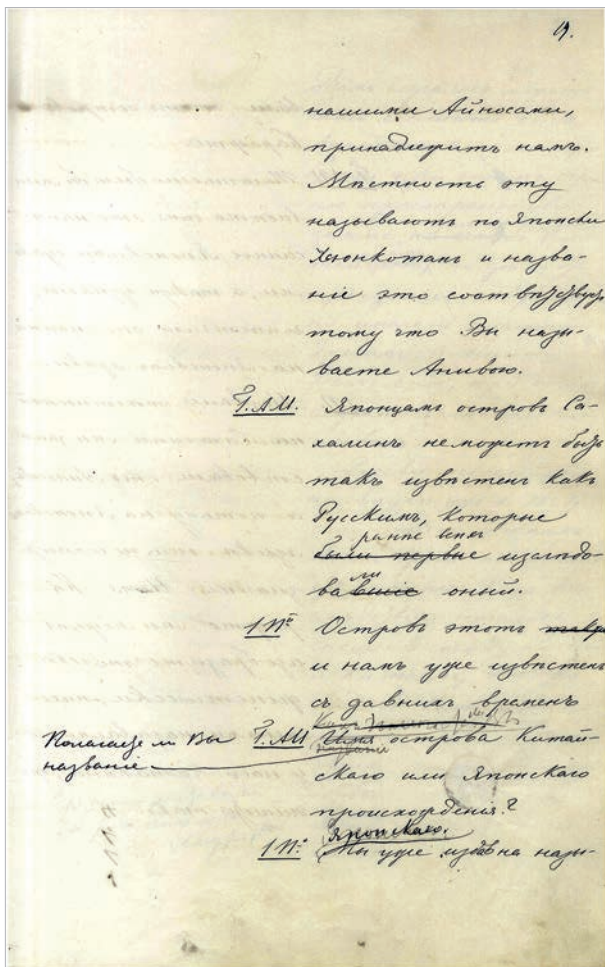 19.
нашими Айносами,
принадлежитъ намъ.
Мѣстность эту
называютъ по Японски
Хюнкотанъ и назва-
ніе это соотвѣтствуетъ
тому что Вы назы-
ваете Анивою.
Г.А.М. Японцамъ островъ Са-
халинъ неможетъ быть
такъ извѣстенъ какъ
Русскимъ, которые
ранѣе всѣхъ
были первые изслѣдо-
ли
вавшіе оный.
1 Пъ Островъ этотъ
и намъ уже извѣстенъ
съ давнихъ временъ
Полагаете ли Вы
названіе
Г.А.М. Имя острова Китай-
названіе
скаго или Японскаго
происхожденія?
Японскаго.
1 Пъ Мы уже издавна назы-